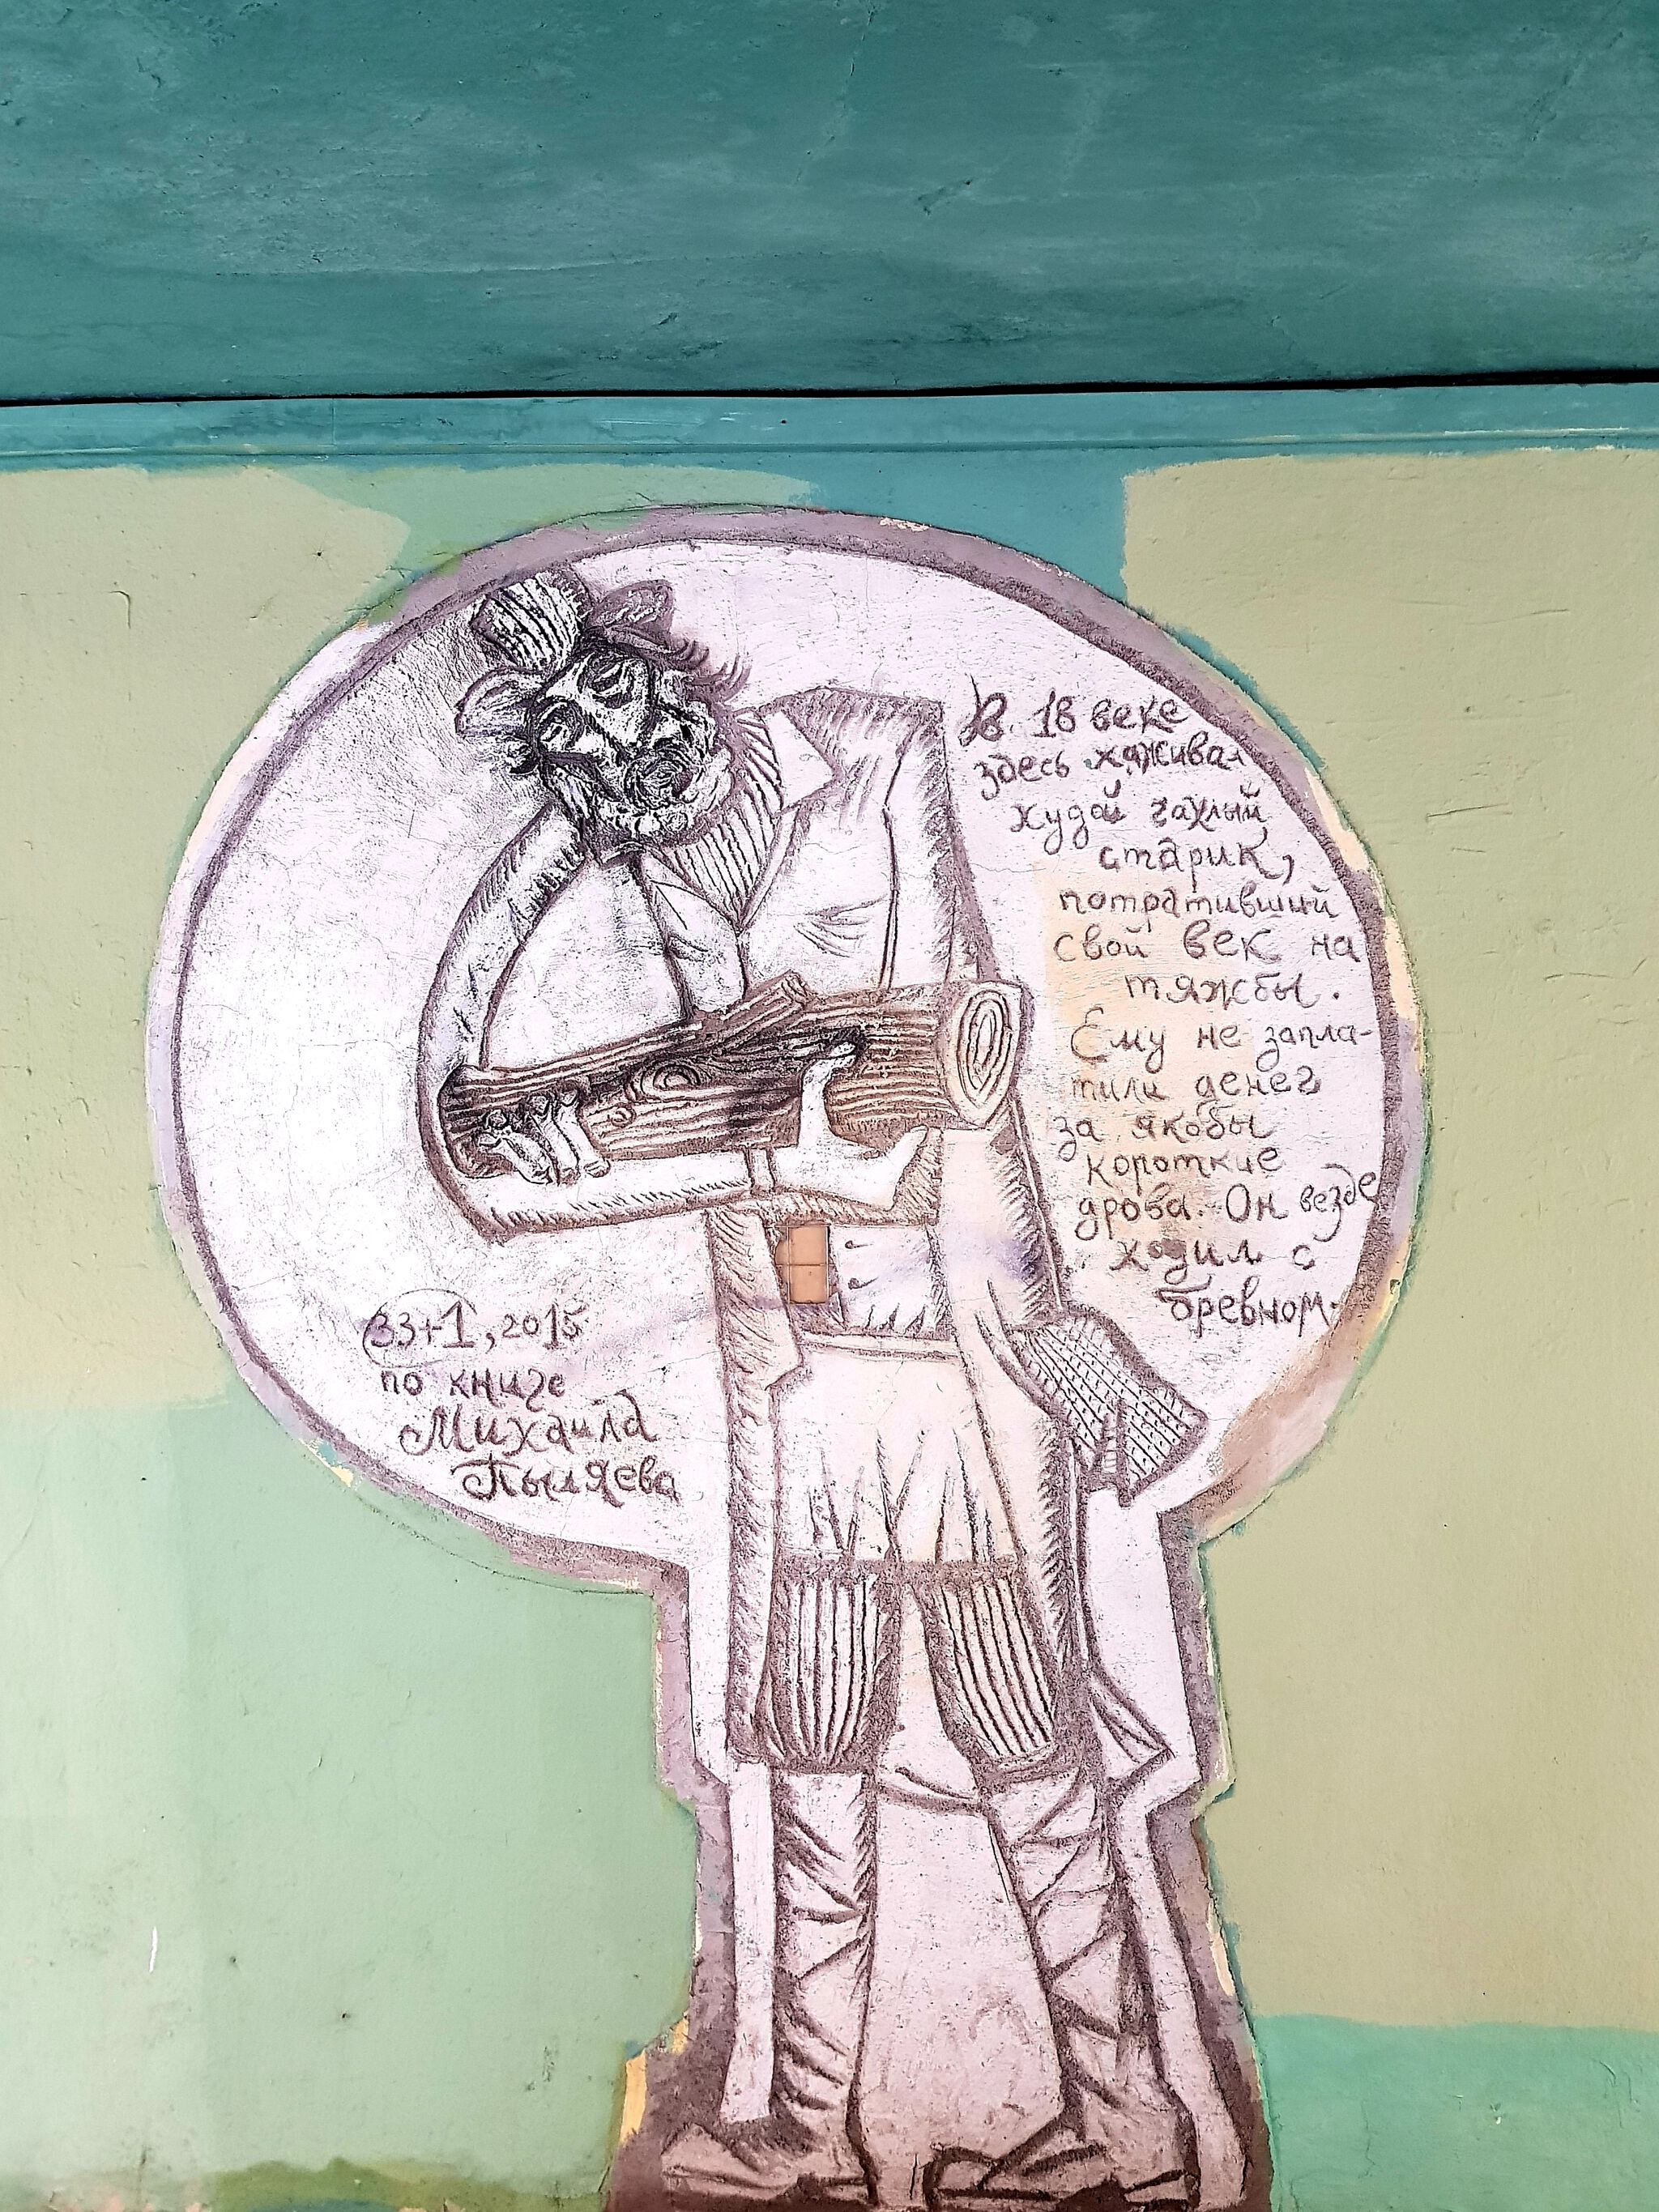 В 18 веке
здесь хаживал
худой чахлый
старик,
потративший
свой век на
тяжбы.
Ему не запла-
тили денег
за якобы
короткие
дрова. Он везде
ходил с
бревном.
33+1, 2015
по книге
Михаила
Пыляева